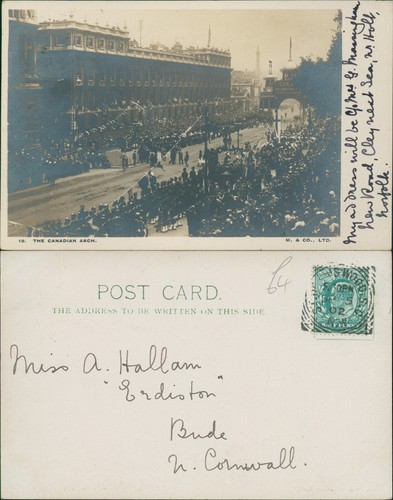 My address will be C/o Mrs G. Massingham
New Road, Cley next Sea, nr Holt,
Norfolk.
18. THE CANADIAN ARCH.
M. & CO., LTD.
POST CARD.
THE ADDRESS TO BE WRITTEN ON THIS SIDE.
£4
02
Miss A. Hallam
"Erdiston"
Bude
N. Cornwall.